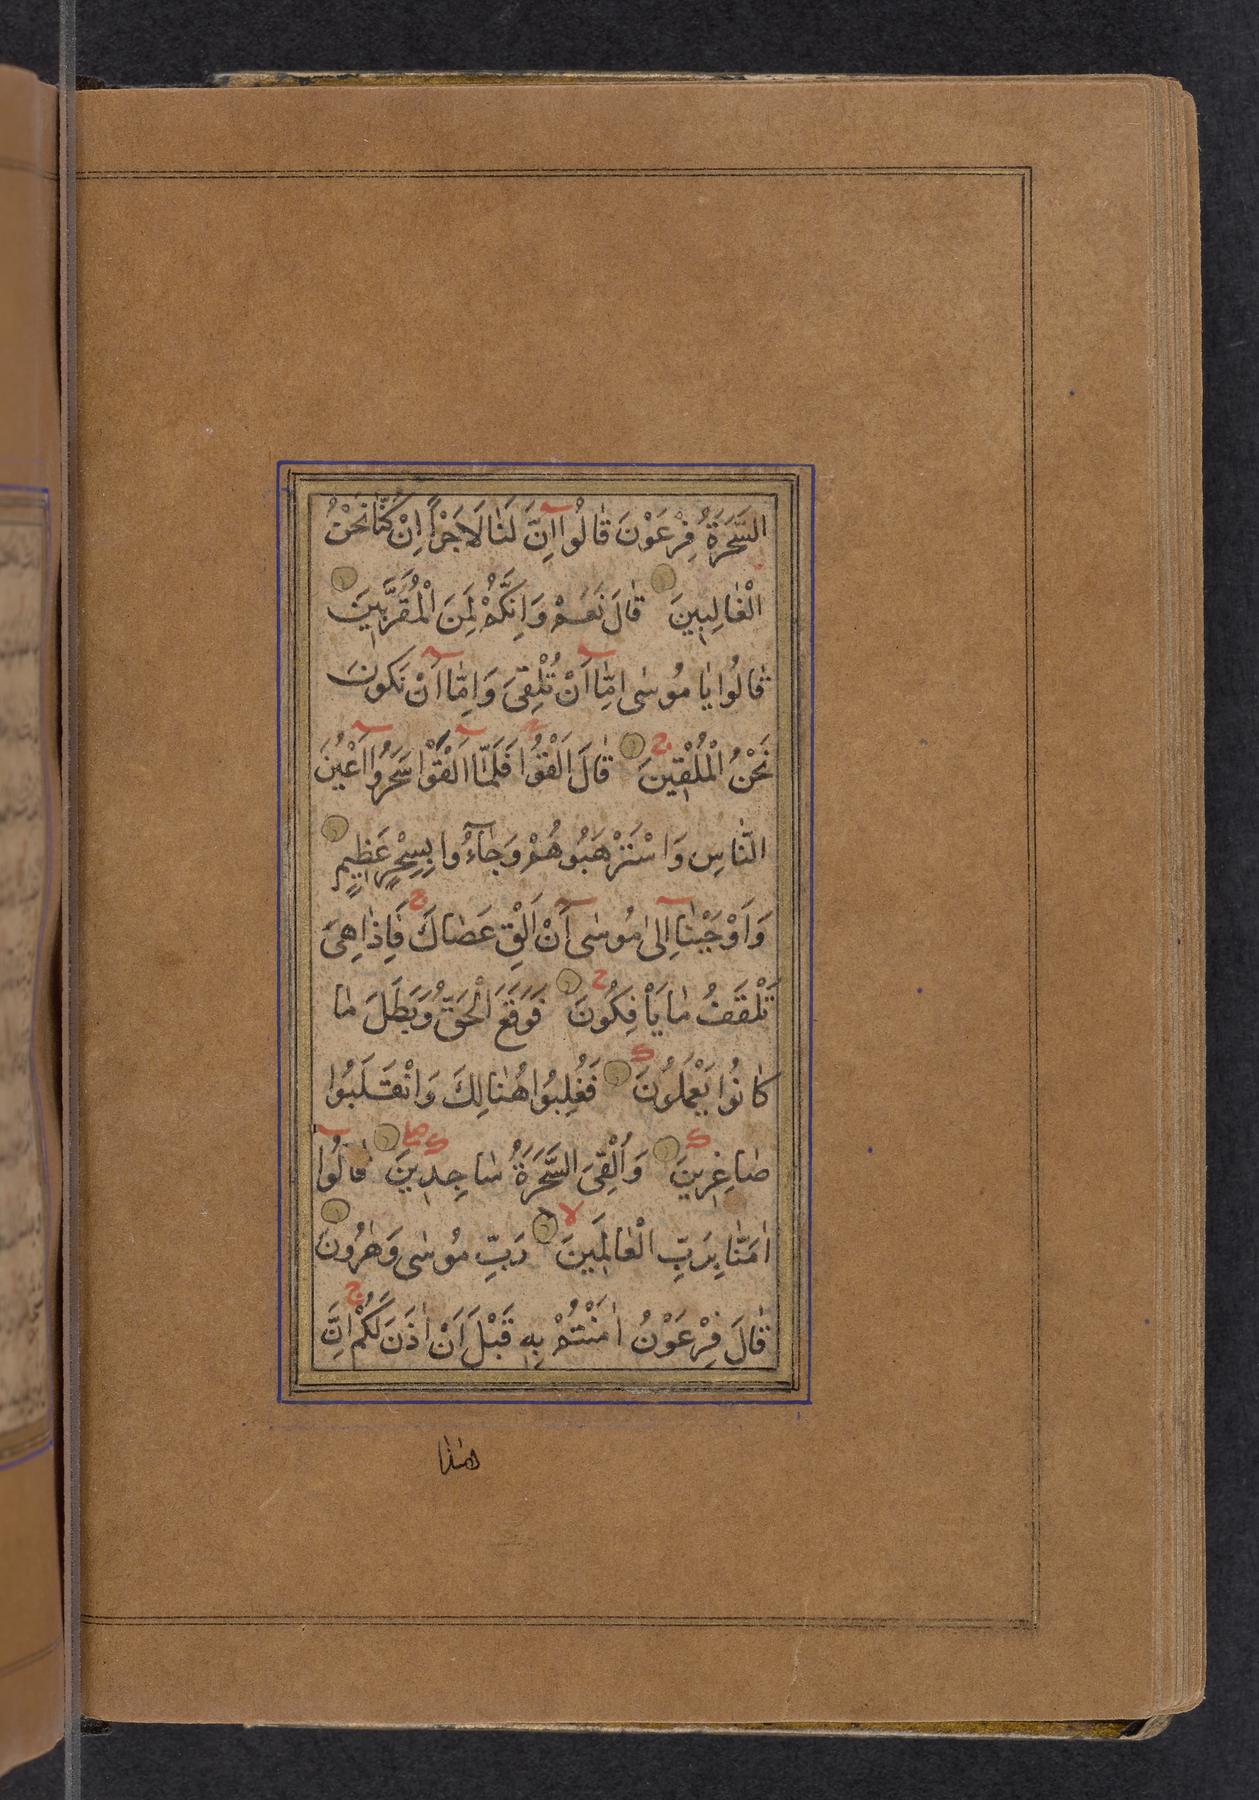 السَّحَرَةُ فِرْعَوْنَ قَالُوا اِنَّ لَنَا لَاَجْرًا اِنْ كُنَّا نَحْنُ
الْغَالِبِينَ قَالَ نَعَمْ وَاِنَّكُمْ لَمِنَ الْمُقَرَّبِينَ
قَالُوا يَا مُوسٰى اِمَّا اَنْ تُلْقِيَ وَاِمَّا اَنْ نَكُونَ
نَحْنُ الْمُلْقِينَ قَالَ اَلْقُوا فَلَمَّا اَلْقَوْا سَحَرُوا اَعْيُنَ
النَّاسِ وَاسْتَرْهَبُوهُمْ وَجَاءُوا بِسِحْرٍ عَظِيمٍ
وَاَوْحَيْنَا اِلٰى مُوسٰى اَنْ اَلْقِ عَصَاكَ فَاِذَا هِيَ
تَلْقَفُ مَا يَأْفِكُونَ فَوَقَعَ الْحَقُّ وَبَطَلَ مَا
كَانُوا يَعْمَلُونَ فَغُلِبُوا هُنَالِكَ وَانْقَلَبُوا
صَاغِرِينَ وَاُلْقِيَ السَّحَرَةُ سَاجِدِينَ قَالُوا
اٰمَنَّا بِرَبِّ الْعَالَمِينَ رَبِّ مُوسٰى وَهٰرُونَ
قَالَ فِرْعَوْنُ اٰمَنْتُمْ بِهِ قَبْلَ اَنْ اٰذَنَ لَكُمْ اِنَّ
هٰذَا